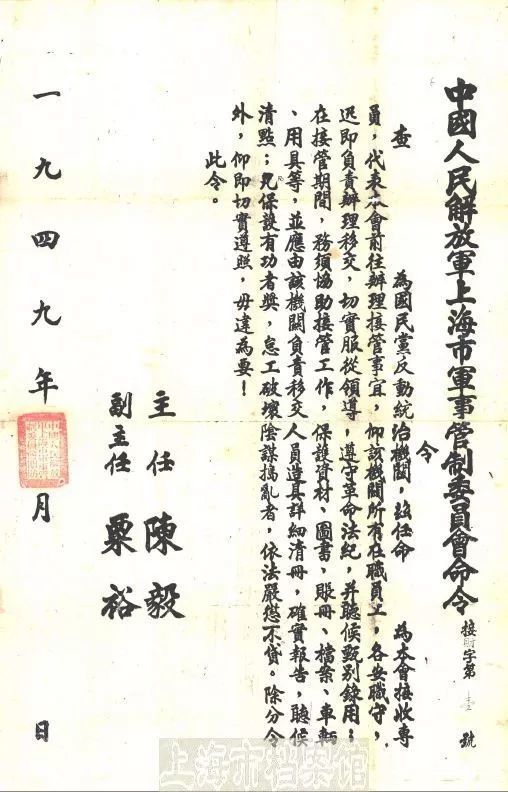 中國人民解放軍上海市軍事管制委員會命令
接財字第壹號
令
查 為國民黨反動統治機關，茲任命 為本會接收專
員，代表本會前往辦理接管事宜，仰該機關所有在職員工，各安職守，
迅即負責辦理移交，切實服從領導，遵守革命法紀，并聽候甄別錄用；
在接管期間，務須協助接管工作，保護資材、圖書、賬冊、檔案、車輛
、用具等，並應由該機關負責移交人員造具詳細清冊，確實報告，聽候
清點；凡保護有功者獎，怠工破壞陰謀搗亂者，依法嚴懲不貸。除分令
外，仰即切實遵照，毋違為要！
此令。
主任 陳毅
副主任 粟裕
一九四九年 月 日
上海市档案馆